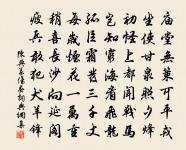 廟堂無策可平戎
坐使甘泉照夕烽
初怪上都聞戰馬
豈知窮海看飛龍
孤臣霜髮三千丈
每歲煙花一萬重
稍喜長沙向延閣
疲兵敢犯犬羊鋒
陳與義傷春詞典網集